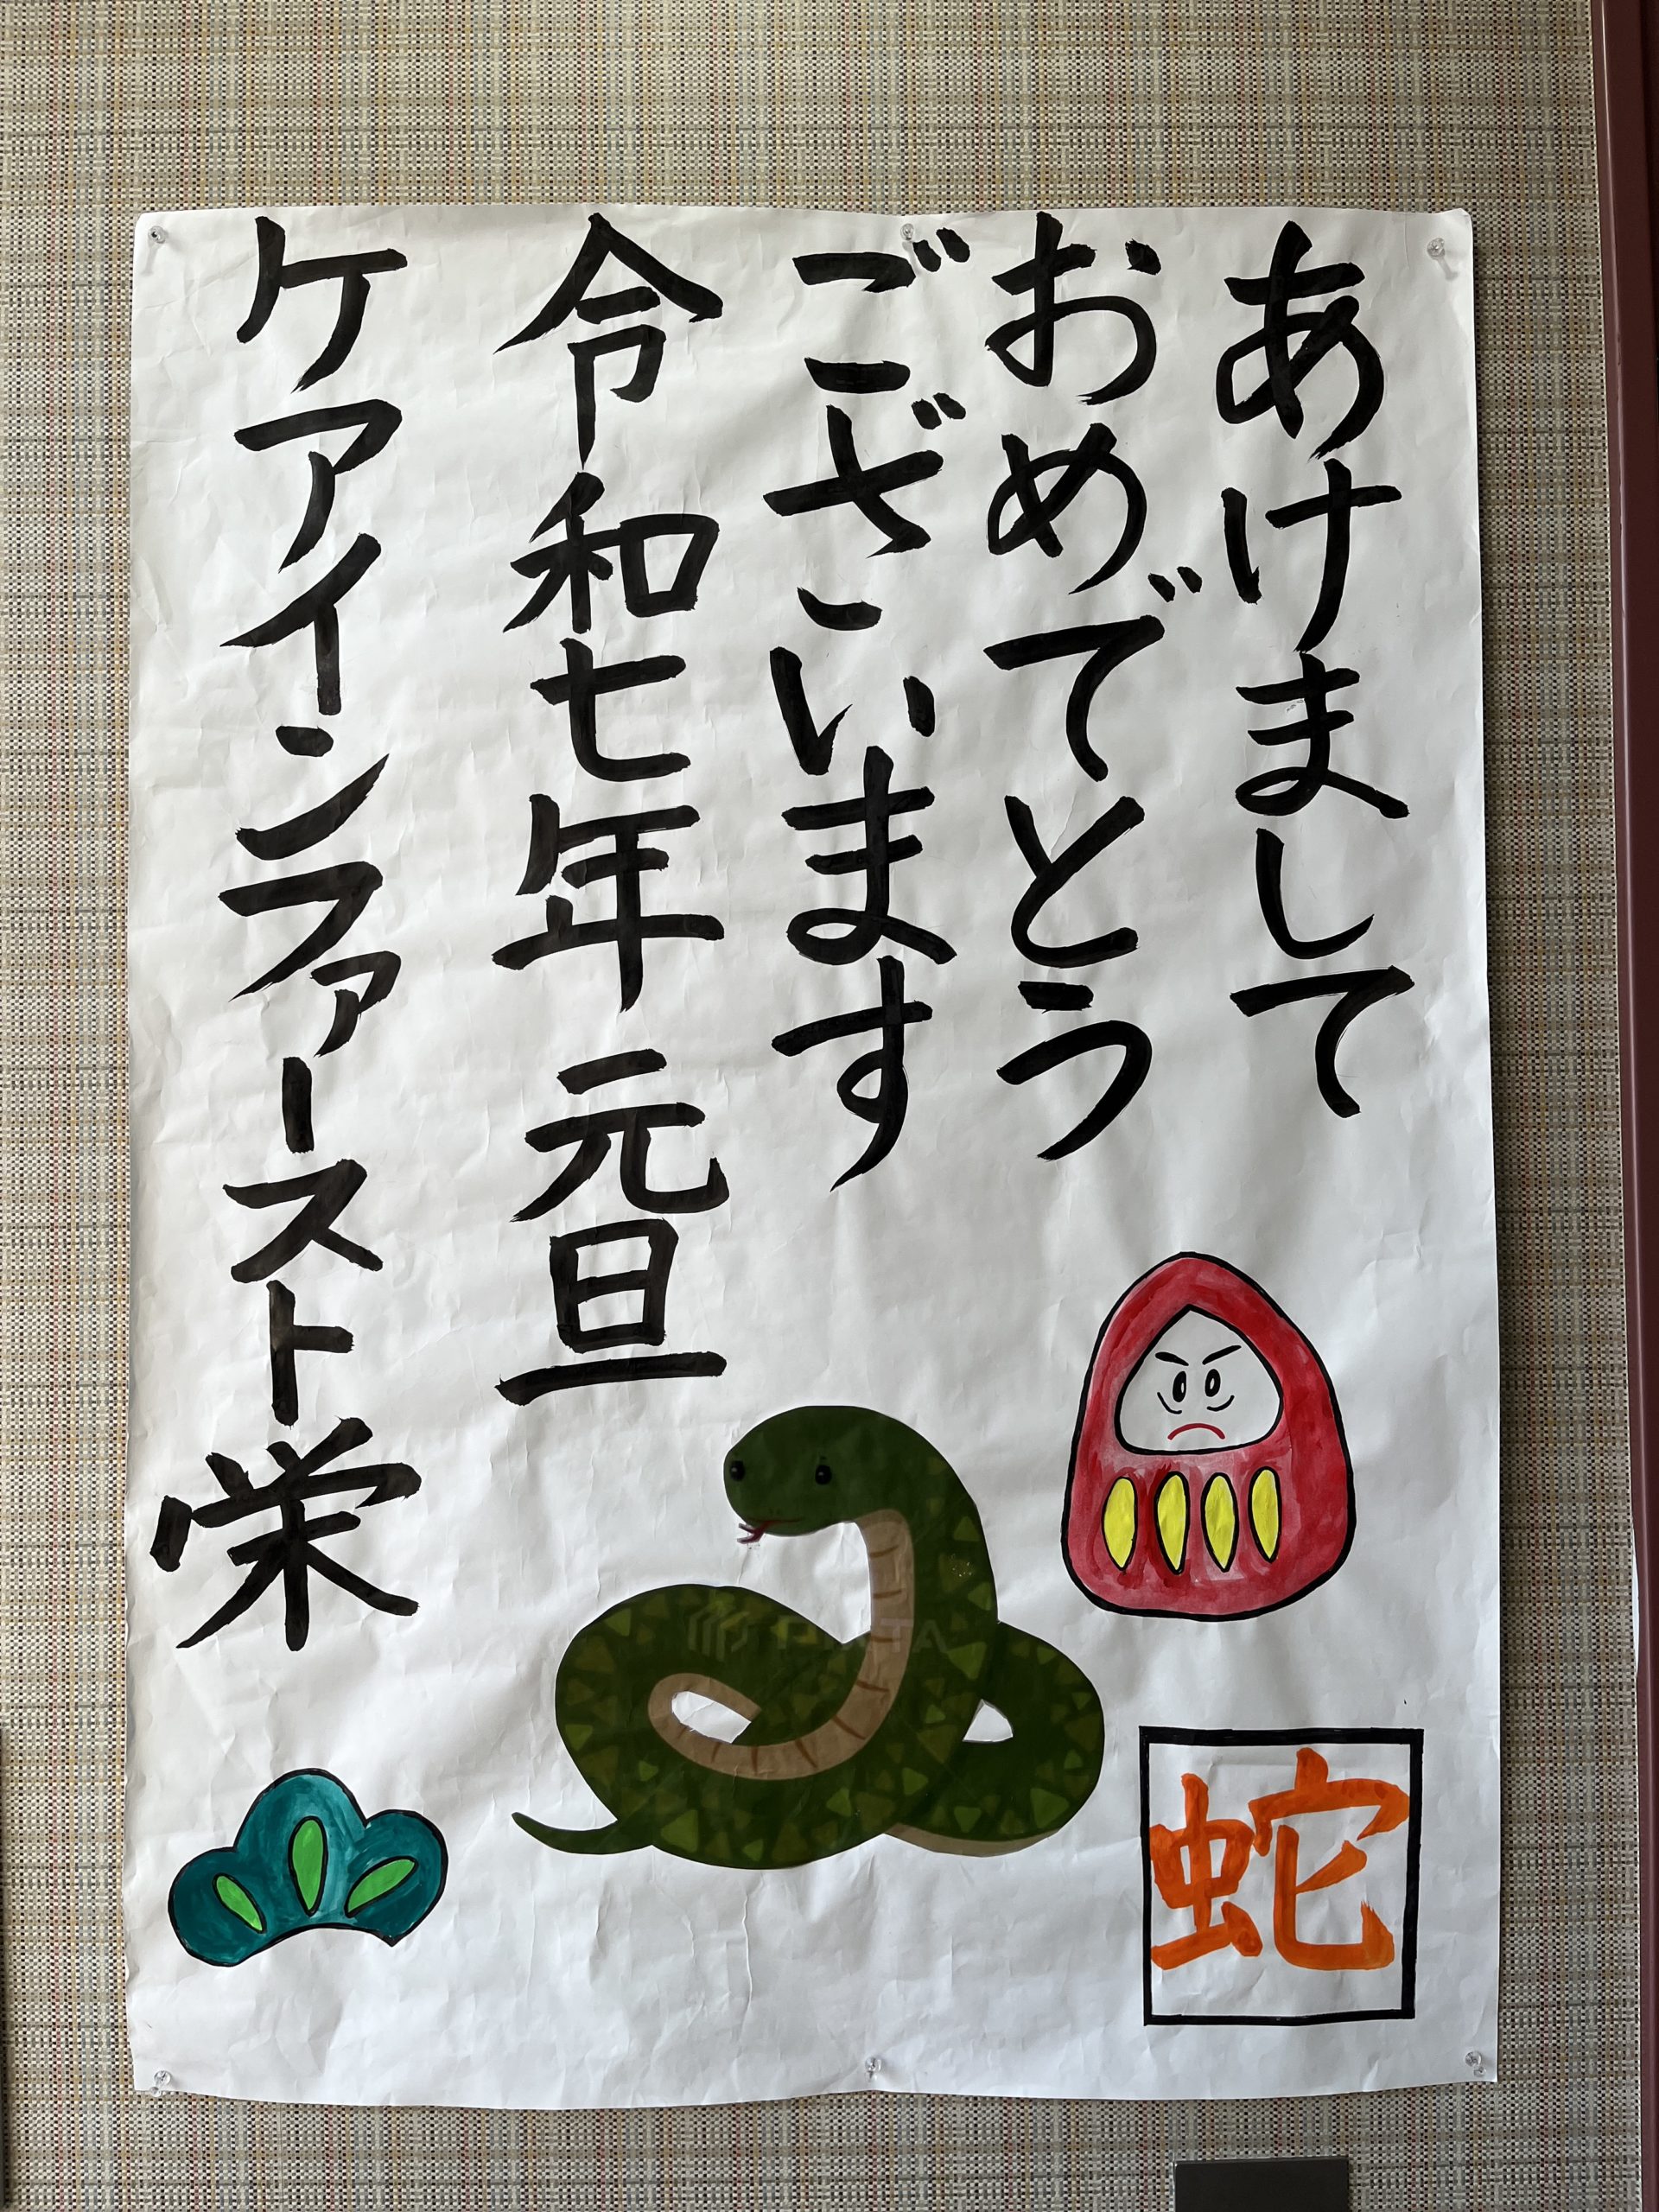 あけまして
おめでとう
ございます
令和七年 元旦
ケアインファースト栄
蛇
PIXTA